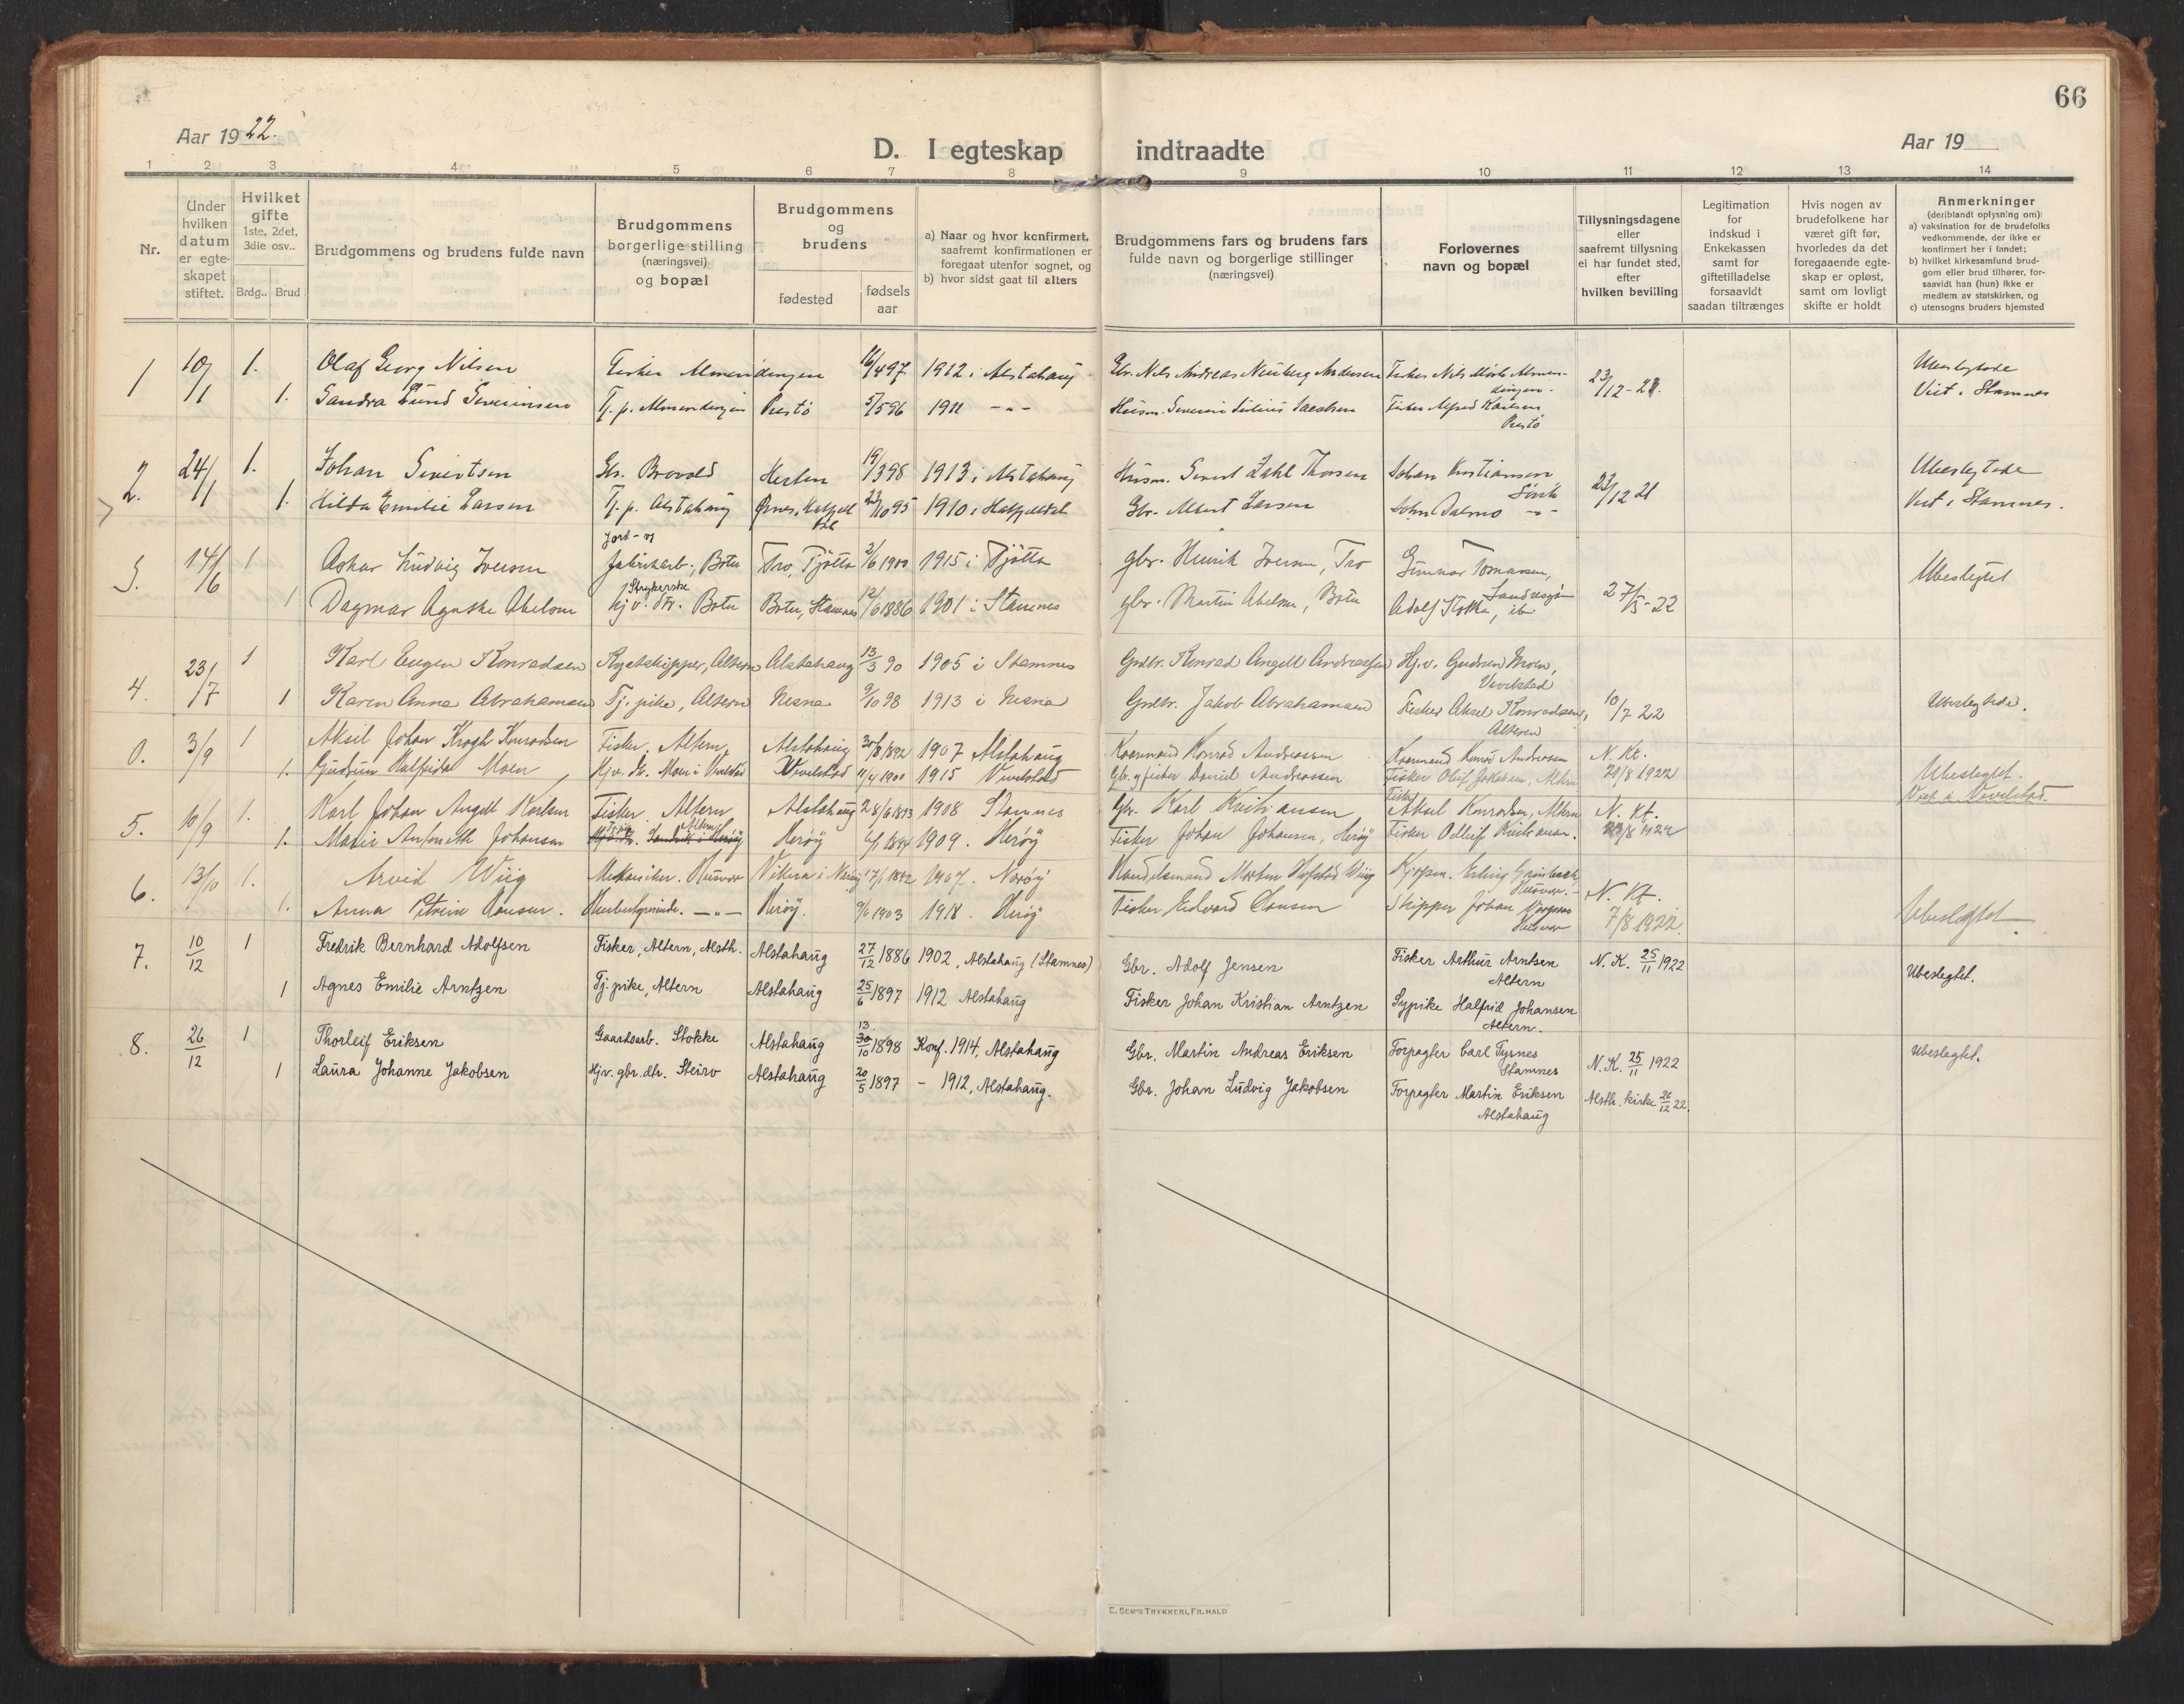 66
Aar 1922.
D. I egteskap indtraadte
Aar 19
1 2 3 4 5 6 7 8 9 10 11 12 13 14
Nr.
Under hvilken datum er egteskapet stiftet.
Hvilket gifte 1ste, 2det, 3die osv..
Brdg.. Brud
Brudgommens og brudens fulde navn
Brudgommens borgerlige stilling (næringsvei) og bopæl
Brudgommens og brudens
fødested
fødsels aar
a) Naar og hvor konfirmert, saafremt konfirmationen er foregaat utenfor sognet, og
b) hvor sidst gaat til alters
Brudgommens fars og brudens fars fulde navn og borgerlige stillinger (næringsvei)
Forlovernes navn og bopæl
Tillysningsdagene eller saafremt tillysning ei har fundet sted, efter hvilken bevilling
Legitimation for indskud i Enkekassen samt for giftetilladelse forsaavidt saadan tiltrænges
Hvis nogen av brudefolkene har været gift før, hvorledes da det foregaaende egteskap er opløst, samt om lovligt skifte er holdt
Anmerkninger (deriblandt oplysning om):
a) vaksination for de brudefolks vedkommende, der ikke er konfirmert her i landet;
b) hvilket kirkesamfund brudgom eller brud tilhører, forsaavidt han (hun) ikke er medlem av statskirken, og
c) utensogns bruders hjemsted
1 10/1 1. Olaf Georg Nilsen Fisker Almendingen 16/4 97 1912 i Alstahaug Gbr. Nils Andreas Neuberg Andersen Fisker Nils Almendingen 23/12-21. Ubeslegtede
1. Sandra Lund Severinsen Tj. p. Almendingen Prestö 5/5 96 1911 -"- Husm. Severin Jacobsen Fisker Alfred Karlsen Prestö Viet i Stamnes
2. 24/1 1. Johan Sivertsen Gbr. Brovold Husm. Sivert Zahl Thorsen 19/3 98 1913 i Alstahaug Johan Kristiansen 23/12 21 Ubeslegtede
1. Hilda Emilie Larsen Tj. p. Alstahaug 23/10 95 1910 i Hatfjelldal Gbr. Albert Larsen John Dalmo -"- Viet i Stamnes.
3. 14/6 1 Oskar Ludvig Iversen Jord- og fabrikarb., Botn Tro, Tjötta 3/6 1900 1915 i Tjötta gbr. Henrik Iversen, Tro Gunnar Tomassen, Sandnessjöen 27/5-22 Ubeslegtet
1 Dagmar Agathe Abelsen Strykerske hjv. dtr. Botn Botn, Stamnes 12/6 1886 1901 i Stamnes gbr. Martin Abelsen, Botn Adolf Stokke, ib.
4. 23/7 1 Karl Eugen Konradsen Jagtskipper, Altern Alstahaug 13/3 90 1905 i Stamnes Grdbr. Konrad Angell Andreassen Hj.v. Gudrun Moen, Vevelstad
1 Karen Anna Abrahamsen Tj. pike, Altern Nesna 9/10 98 1913 i Nesna Grdbr. Jakob Abrahamsen Fisker Aksel Konradsen, Alteren 10/7 22 Ubeslegtede.
0. 3/9 1 Aksel Johan Krogh Konradsen Fisker. Altern Alstahaug 30/8 1892 1907 Alstahaug Kaarmand Konrad Andreassen Kaarmand Konrad Andreasen N. Kt.
1. Gudrun Halfrida Moen Hjv. dtr. Moen i Vevelstad Vevelstad 11/4 1900 1915 Vevelstad Gbr. og fisker Daniel Andreassen Fisker Olaf Jakobsen, Altern 20/8 1922 Ubeslegtet. Viet i Vevelstad.
5. 10/9 1. Karl Johan Angell Karlsen Fisker. Altern Alstahaug 28/6 1893 1908 Stamnes Gbr. Karl Kristiansen Fisker Aksel Konradsen, Altern N. Kt.
1. Marie Johansen Tj.pike Altern Herøy 1909. Herøy Fisker Johan Johansen, Herøy Fisker Odleif Kristiansen. 23/8 1922
6. 13/10 1. Arvid Wiig Mekaniker. Husvær Vikna i Nærøy 17/1 1892 1907. Nærøy Handelsmand Morten Hofstad Wiig Kjøpm. Erling Grønbech Husvær. N. Kt.
1. Anna Petrine Hansen. -"- Herøy. 9/6 1903 1918. Herøy Fisker Edvard Hansen Skipper Johan Husvær 7/8 1922. Ubeslegtet.
7. 10/12 1 Fredrik Bernhard Adolfsen Fisker, Altern, Alsth. Alstahaug 27/12 1886 1902, Alstahaug (Stamnes) Gbr. Adolf Jensen Fisker Arthur Arntsen Altern N. K. 25/11 1922 Ubeslegtet.
1 Agnes Emilie Arntzen Tj. pike, Altern Alstahaug 25/6 1897 1912 Alstahaug Fisker Johan Kristian Arntzen Sypike Halfrid Johansen Altern.
8. 26/12 1 Thorleif Eriksen Gaardsarb. Stokke Alstahaug 13/10 1898 Konf. 1914, Alstahaug Gbr. Martin Andreas Eriksen Forpagter Carl Tysnes Stamnes N. K. 25/11 1922 Ubeslegtet.
1 Laura Johanne Jakobsen Hjv. gbr. dtr. Steiro Alstahaug 20/5 1897 - 1912, Alstahaug. Gbr. Johan Ludvig Jakobsen Forpagter Martin Eriksen Alstahaug Alsth. kirke 26/12 22.
E. SEM'S TRYKKERI, FR. HALD